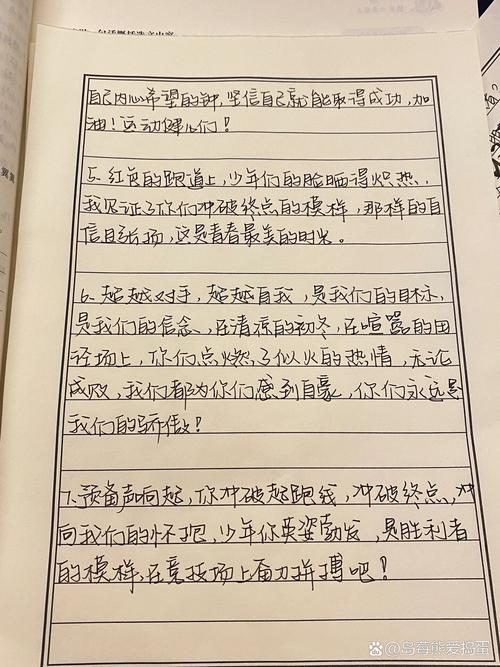 自己内心希望的钟,坚信自己就能取得成功,加
油!运动健儿们!
5、红色的跑道上,少年们的脸晒得炽热,
我见证了你们冲破终点的模样,那样的自
信且张扬,这是青春最美的时光。
6、超越对手,超越自我,是我们的目标,
是我们的信念,在清凉的初冬,在喧嚣的田
径场上,你们点燃了似火的热情,无论
成败,我们都为你们感到自豪,你们永远是
我们的骄傲!
7、预备声响起,你冲破起跑线,冲破终点,冲
向我们的怀抱,少年你英姿勃发,是胜利者
的模样,在竞技场上奋力拼搏吧!
岛莓熊爱捣蛋